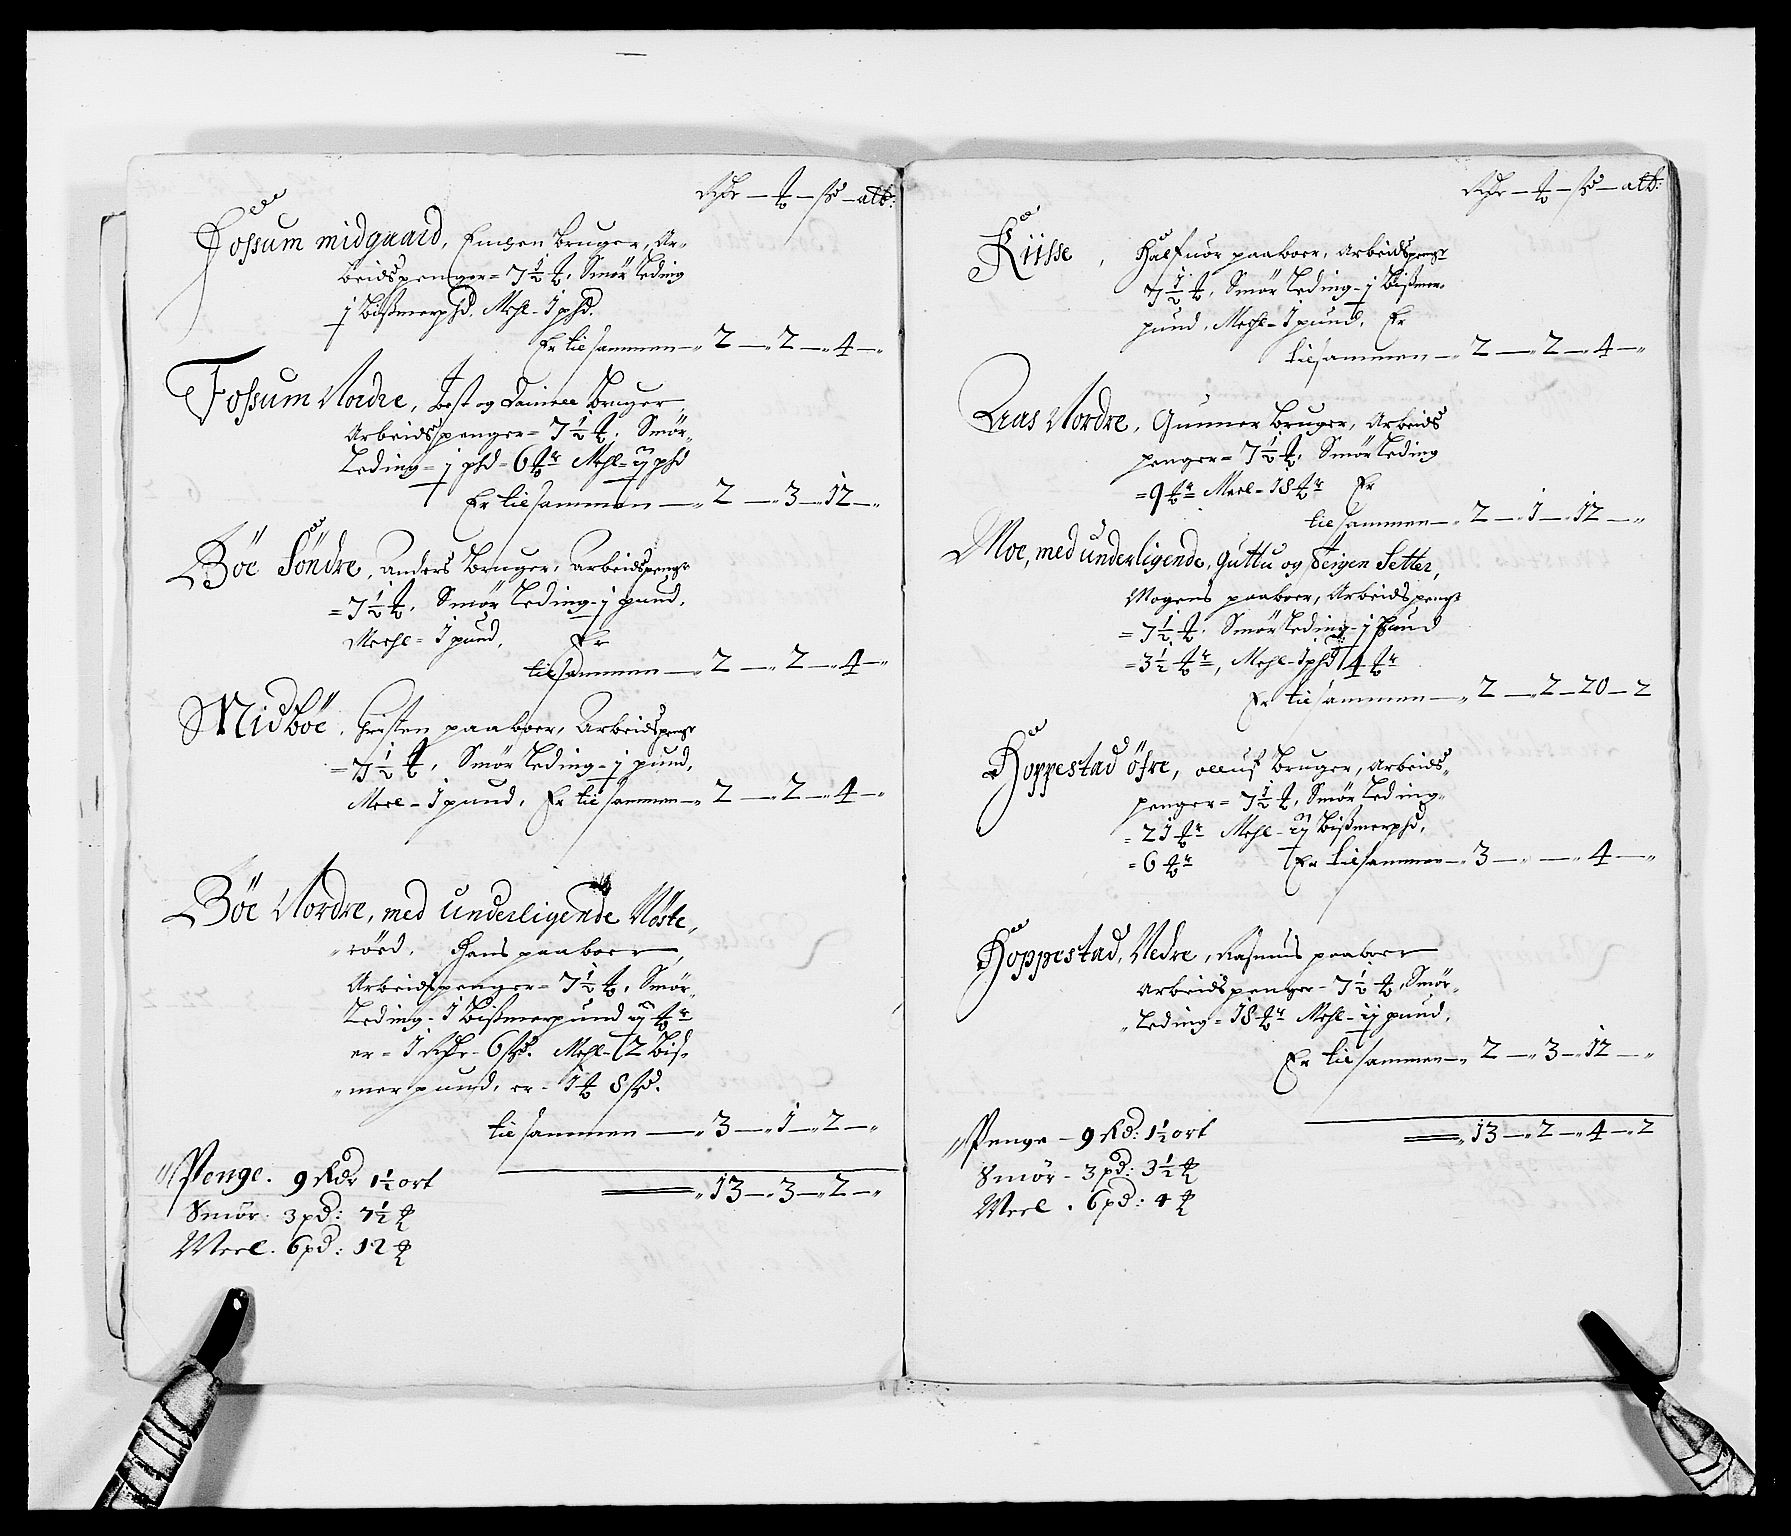 Rdr — ℔ — ß — alb:
Fossum midgaard, Bruger, Ar-
beidspenger = 7½ ℔, Smør Leding
j Bißmerpd. Mehl - 1 pd.
Er tilsammen — 2 — 2 — 4 —
Fossum Nordre, og Daniel Bruger
Arbeidspenger = 7½ ℔, Smør-
Leding = j pd = 6 ℔r Mehl = ij pd
Er tilsammen — 2 — 3 — 12 —
Böe Söndre, Anders Bruger, Arbeidspengr
= 7½ ℔, Smør Leding - j pund,
Meehl = 1 pund, Er
tilsammen — 2 — 2 — 4 —
Midböe, Christen paaboer, Arbeidspengr
= 7½ ℔, Smør Leding = j pund,
Meel - 1 pund, Er tilsammen — 2 — 2 — 4 —
Böe Nordre, med underligende Nöste,
röed, Hans paaboer,
Arbeidspenger = 7½ ℔, Smör-
Leding - 1 Bißmerpund ij ℔r
er = 1 Rdr - 6 ß. Mehl - 2 Bis-
merpund, er - 1 ℔ 8 ß.
tilsammen — 3 — 1 — 2 —
Penge. 9 Rdr 1½ ort
Smör. 3 pd: 7½ ℔
Meel. 6 pd: 12 ℔
13 — 3 — 2 —
Rdr — ℔ — ß — alb:
Riisse, Halfuor paaboer, Arbeidspengr
7½ ℔, Smør Leding - j Bißmer-
pund, Meehl - 1 pund, Er
tilsammen — 2 — 2 — 4 —
Aas Nordre, Gunner Bruger, Arbeids
penger = 7½ ℔, Smör Leding
= 9 ℔r Meel - 18 ℔r Er
tilsammen — 2 — 1 — 12 —
Moe, med underligende, Guttu og Setter,
Mogens paaboer, Arbeidspengr
= 7½ ℔, Smör Leding - j Pund
= 3½ ℔r, Mehl - 1 pd 4 ℔r
Er tilsammen — 2 — 2 — 20 — 2
Hoppestad öfre, Olluf Bruger, Arbeids-
penger = 7½ ℔, Smör Leding-
= 21 ℔r Mehl - ij Bißmerpd,
= 6 ℔r Er tilsammen — 3 — — 4 —
Hoppestad, Nedre, Rasmus paaboer
Arbeidspenger - 7½ ℔, Smör-
Leding = 18 ℔r Mehl - ij pund,
Er tilsammen — 2 — 3 — 12 —
13 — 2 — 4 — 2
Penge - 9 Rd: 1½ ort
Smör - 3 pd: 3½ ℔
Meel . 6 pd: 4 ℔